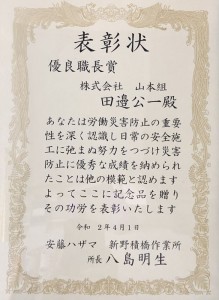 表彰状
優良職長賞
株式会社　山本組
田邉公一殿
あなたは労働災害防止の重要
性を深く認識し日常の安全施
工に弛まぬ努力をつづけ災害
防止に優秀な成績を納められ
たことは他の模範と認めます
よってここに記念品を贈り
その功労を表彰いたします
令和　２年４月１日
安藤ハザマ　新野積橋作業所
所長　八島明生